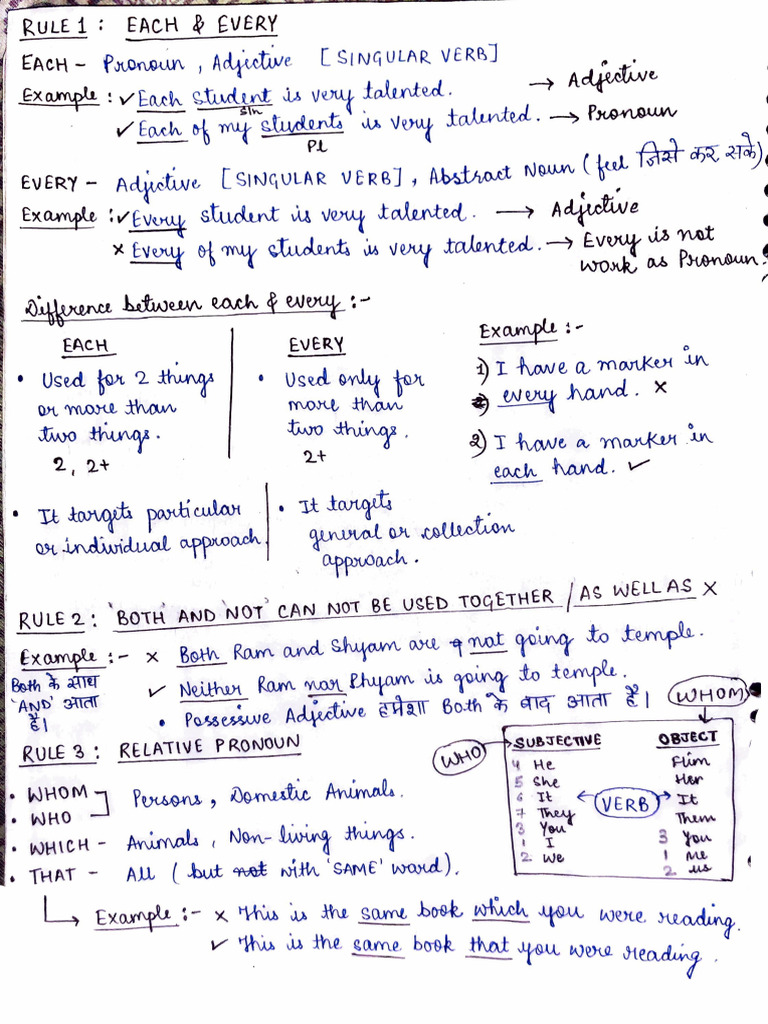 RULE 1 : EACH & EVERY
EACH - Pronoun , Adjective [SINGULAR VERB]
Example : ✓ Each student is very talented. → Adjective
sin
✓ Each of my students is very talented. → Pronoun
Pl
EVERY - Adjective [SINGULAR VERB] , Abstract Noun (feel जिसे कर सके)
Example : ✓ Every student is very talented. → Adjective
× Every of my students is very talented. → Every is not
work as Pronoun.
Difference between each & every :-
EACH
• Used for 2 things
or more than
two things.
2, 2+
EVERY
• Used only for
more than
two things.
2+
Example :-
1) I have a marker in
every hand. ×
2) I have a marker in
each hand. ✓
• It targets particular
or individual approach.
• It targets
general or collection
approach.
RULE 2 : 'BOTH' AND 'NOT' CAN NOT BE USED TOGETHER / AS WELL AS ×
Example :- × Both Ram and Shyam are not going to temple.
✓ Neither Ram nor Shyam is going to temple.
Both के साथ
'AND' आता
है।
• Possessive Adjective हमेशा Both के बाद आता है।
RULE 3 : RELATIVE PRONOUN
• WHOM
• WHO
Persons, Domestic Animals.
• WHICH - Animals, Non-living things.
• THAT - All (but not with 'SAME' word).
WHO
WHOM
SUBJECTIVE OBJECT
4 He Him
5 She Her
6 It ← VERB → It
7 They Them
3 You 3 You
1 I 1 Me
2 We 2 us
Example :- × This is the same book which you were reading.
✓ This is the same book that you were reading.